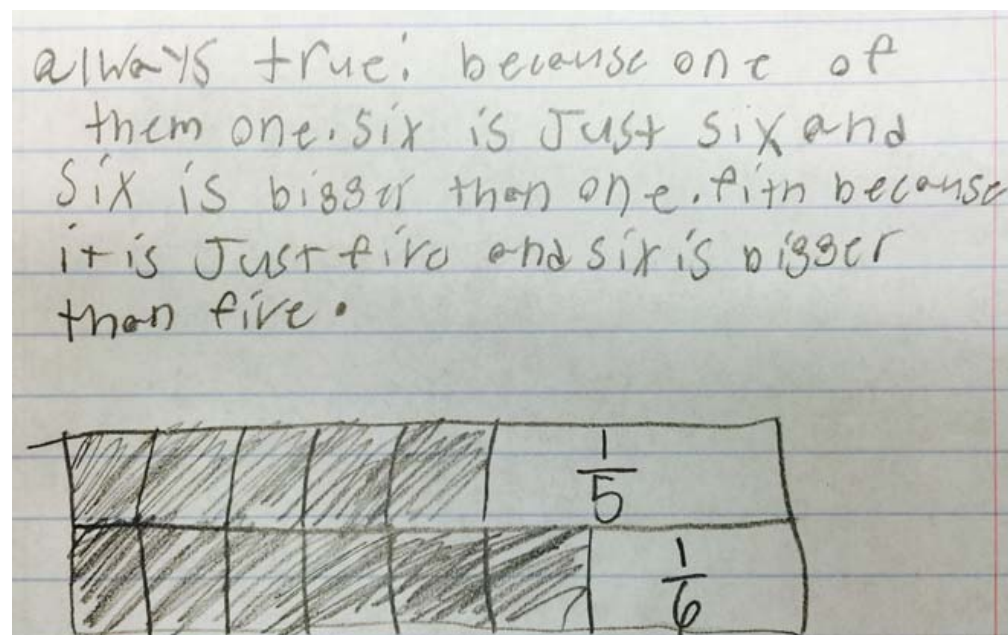 always true: because one of
them one. six is Just six and
Six is bigger than one. fith because
it is Just five and six is bigger
than five.
1
5
1
6